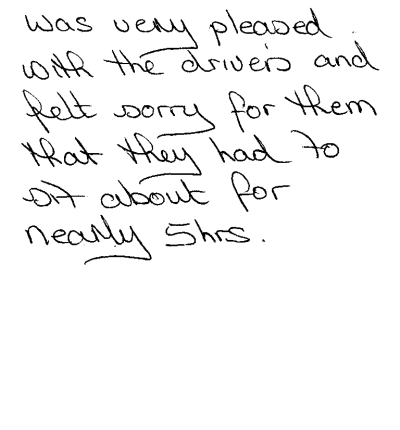 was very pleased
with the drivers and
felt sorry for them
that they had to
sit about for
nearly 5hrs.